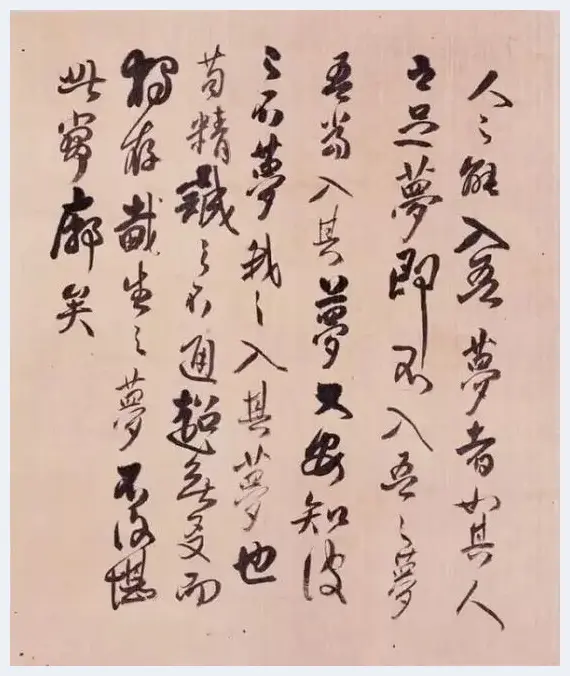 人之能入吾夢者如其人
亡足夢即不入吾之夢
吾當入其夢又安知彼
之不夢我之入其夢也
苟精誠之不通超無友而
獨存生之夢不復堪
此寥廓矣